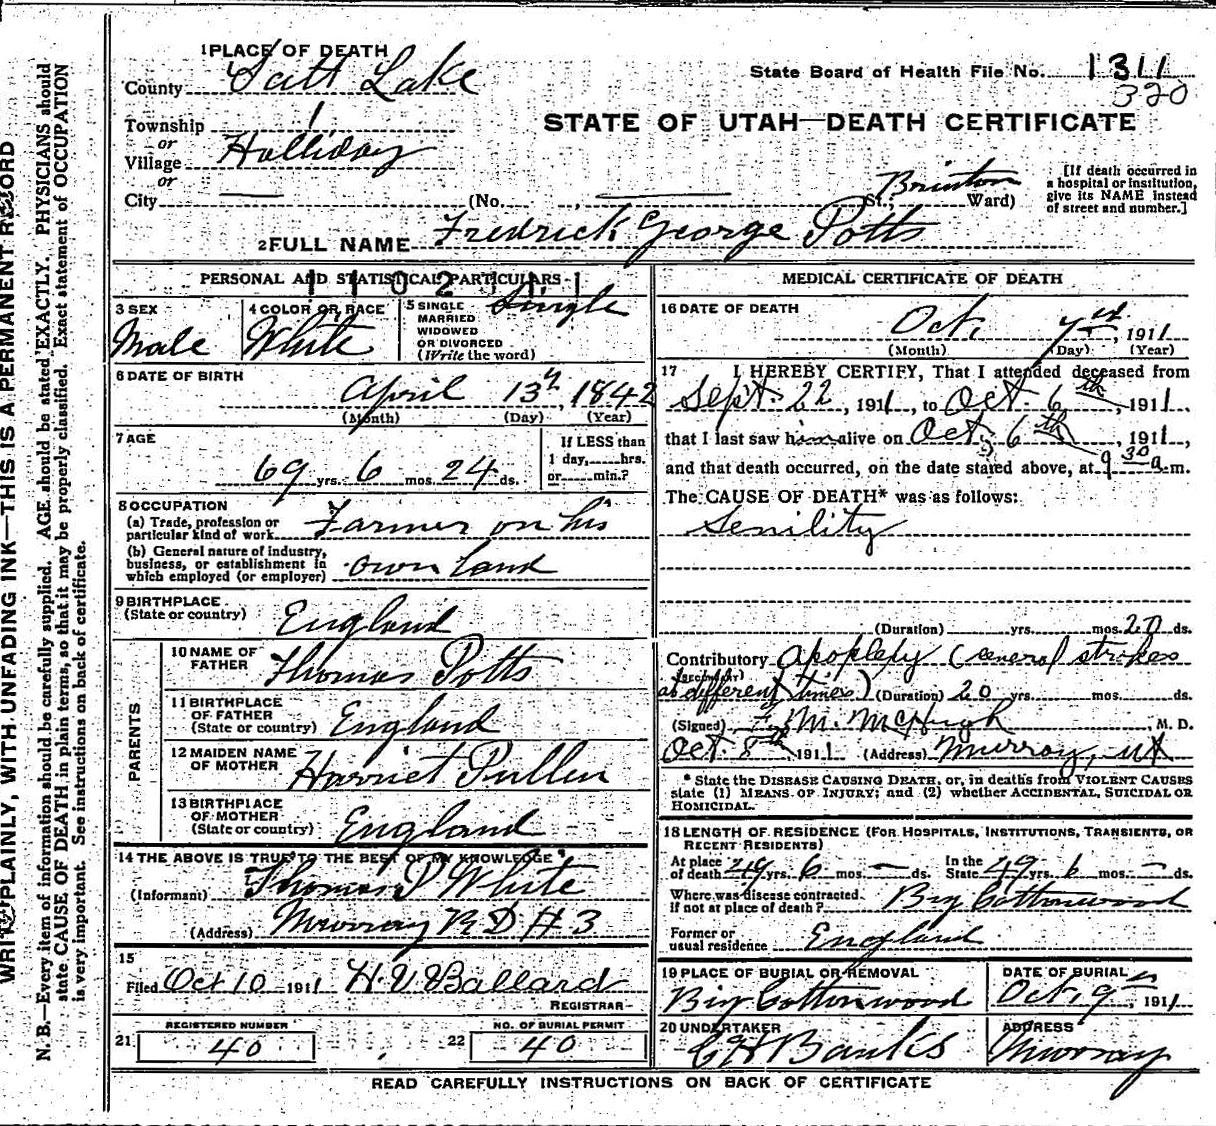 WRITE PLAINLY, WITH UNFADING INK—THIS IS A PERMANENT RECORD
N. B.—Every item of information should be carefully supplied. AGE should be stated EXACTLY. PHYSICIANS should
state CAUSE OF DEATH in plain terms, so that it may be properly classified. Exact statement of OCCUPATION
is very important. See instructions on back of certificate.
1 PLACE OF DEATH
County Salt Lake
State Board of Health File No. 1311
320
Township 1
or
Village Holliday
or
City
STATE OF UTAH—DEATH CERTIFICATE
(No. , St.; Brinton Ward)
[If death occurred in
a hospital or institution,
give its NAME instead
of street and number.]
2 FULL NAME Fredrick George Potts
PERSONAL AND STATISTICAL PARTICULARS
110241
3 SEX
Male
4 COLOR OR RACE
White
5 SINGLE
MARRIED
WIDOWED
OR DIVORCED
(Write the word)
Single
6 DATE OF BIRTH
April 13th, 1842
(Month) (Day) (Year)
7 AGE
69 yrs. 6 mos. 24 ds.
If LESS than
1 day, hrs.
or min.?
8 OCCUPATION
(a) Trade, profession or
particular kind of work Farmer on his
(b) General nature of industry,
business, or establishment in
which employed (or employer) own land
9 BIRTHPLACE
(State or country) England
PARENTS
10 NAME OF
FATHER Thomas Potts
11 BIRTHPLACE
OF FATHER
(State or country) England
12 MAIDEN NAME
OF MOTHER Harriet Pullin
13 BIRTHPLACE
OF MOTHER
(State or country) England
14 THE ABOVE IS TRUE TO THE BEST OF MY KNOWLEDGE
(Informant) Thomas P White
(Address) Murray R D # 3
15
Filed Oct 10 1911 H. V. Ballard
REGISTRAR
21 REGISTERED NUMBER
40
22 NO. OF BURIAL PERMIT
40
MEDICAL CERTIFICATE OF DEATH
16 DATE OF DEATH
Oct. 7th, 1911
(Month) (Day) (Year)
17 I HEREBY CERTIFY, That I attended deceased from
Sept. 22, 1911, to Oct 6th, 1911,
that I last saw him alive on Oct. 6th, 1911,
and that death occurred, on the date stated above, at 9 30 a.m.
The CAUSE OF DEATH* was as follows:
Senility
(Duration) yrs. mos. 20 ds.
Contributory Apoplexy (several strokes
(SECONDARY)
at different times) (Duration) 20 yrs. mos. ds.
(Signed) M. McHugh, M. D.
Oct. 8th, 1911 (Address) Murray, Ut
* State the DISEASE CAUSING DEATH, or, in deaths from VIOLENT CAUSES
state (1) MEANS OF INJURY; and (2) whether ACCIDENTAL, SUICIDAL OR
HOMICIDAL.
18 LENGTH OF RESIDENCE (FOR HOSPITALS, INSTITUTIONS, TRANSIENTS, OR
RECENT RESIDENTS)
At place
of death 49 yrs. 6 mos. — ds.
In the
State 49 yrs. 6 mos. — ds.
Where was disease contracted.
If not at place of death? Big Cottonwood
Former or
usual residence England
19 PLACE OF BURIAL OR REMOVAL
Big Cottonwood
DATE OF BURIAL
Oct. 9th, 1911
20 UNDERTAKER
Banks
ADDRESS
Murray
READ CAREFULLY INSTRUCTIONS ON BACK OF CERTIFICATE